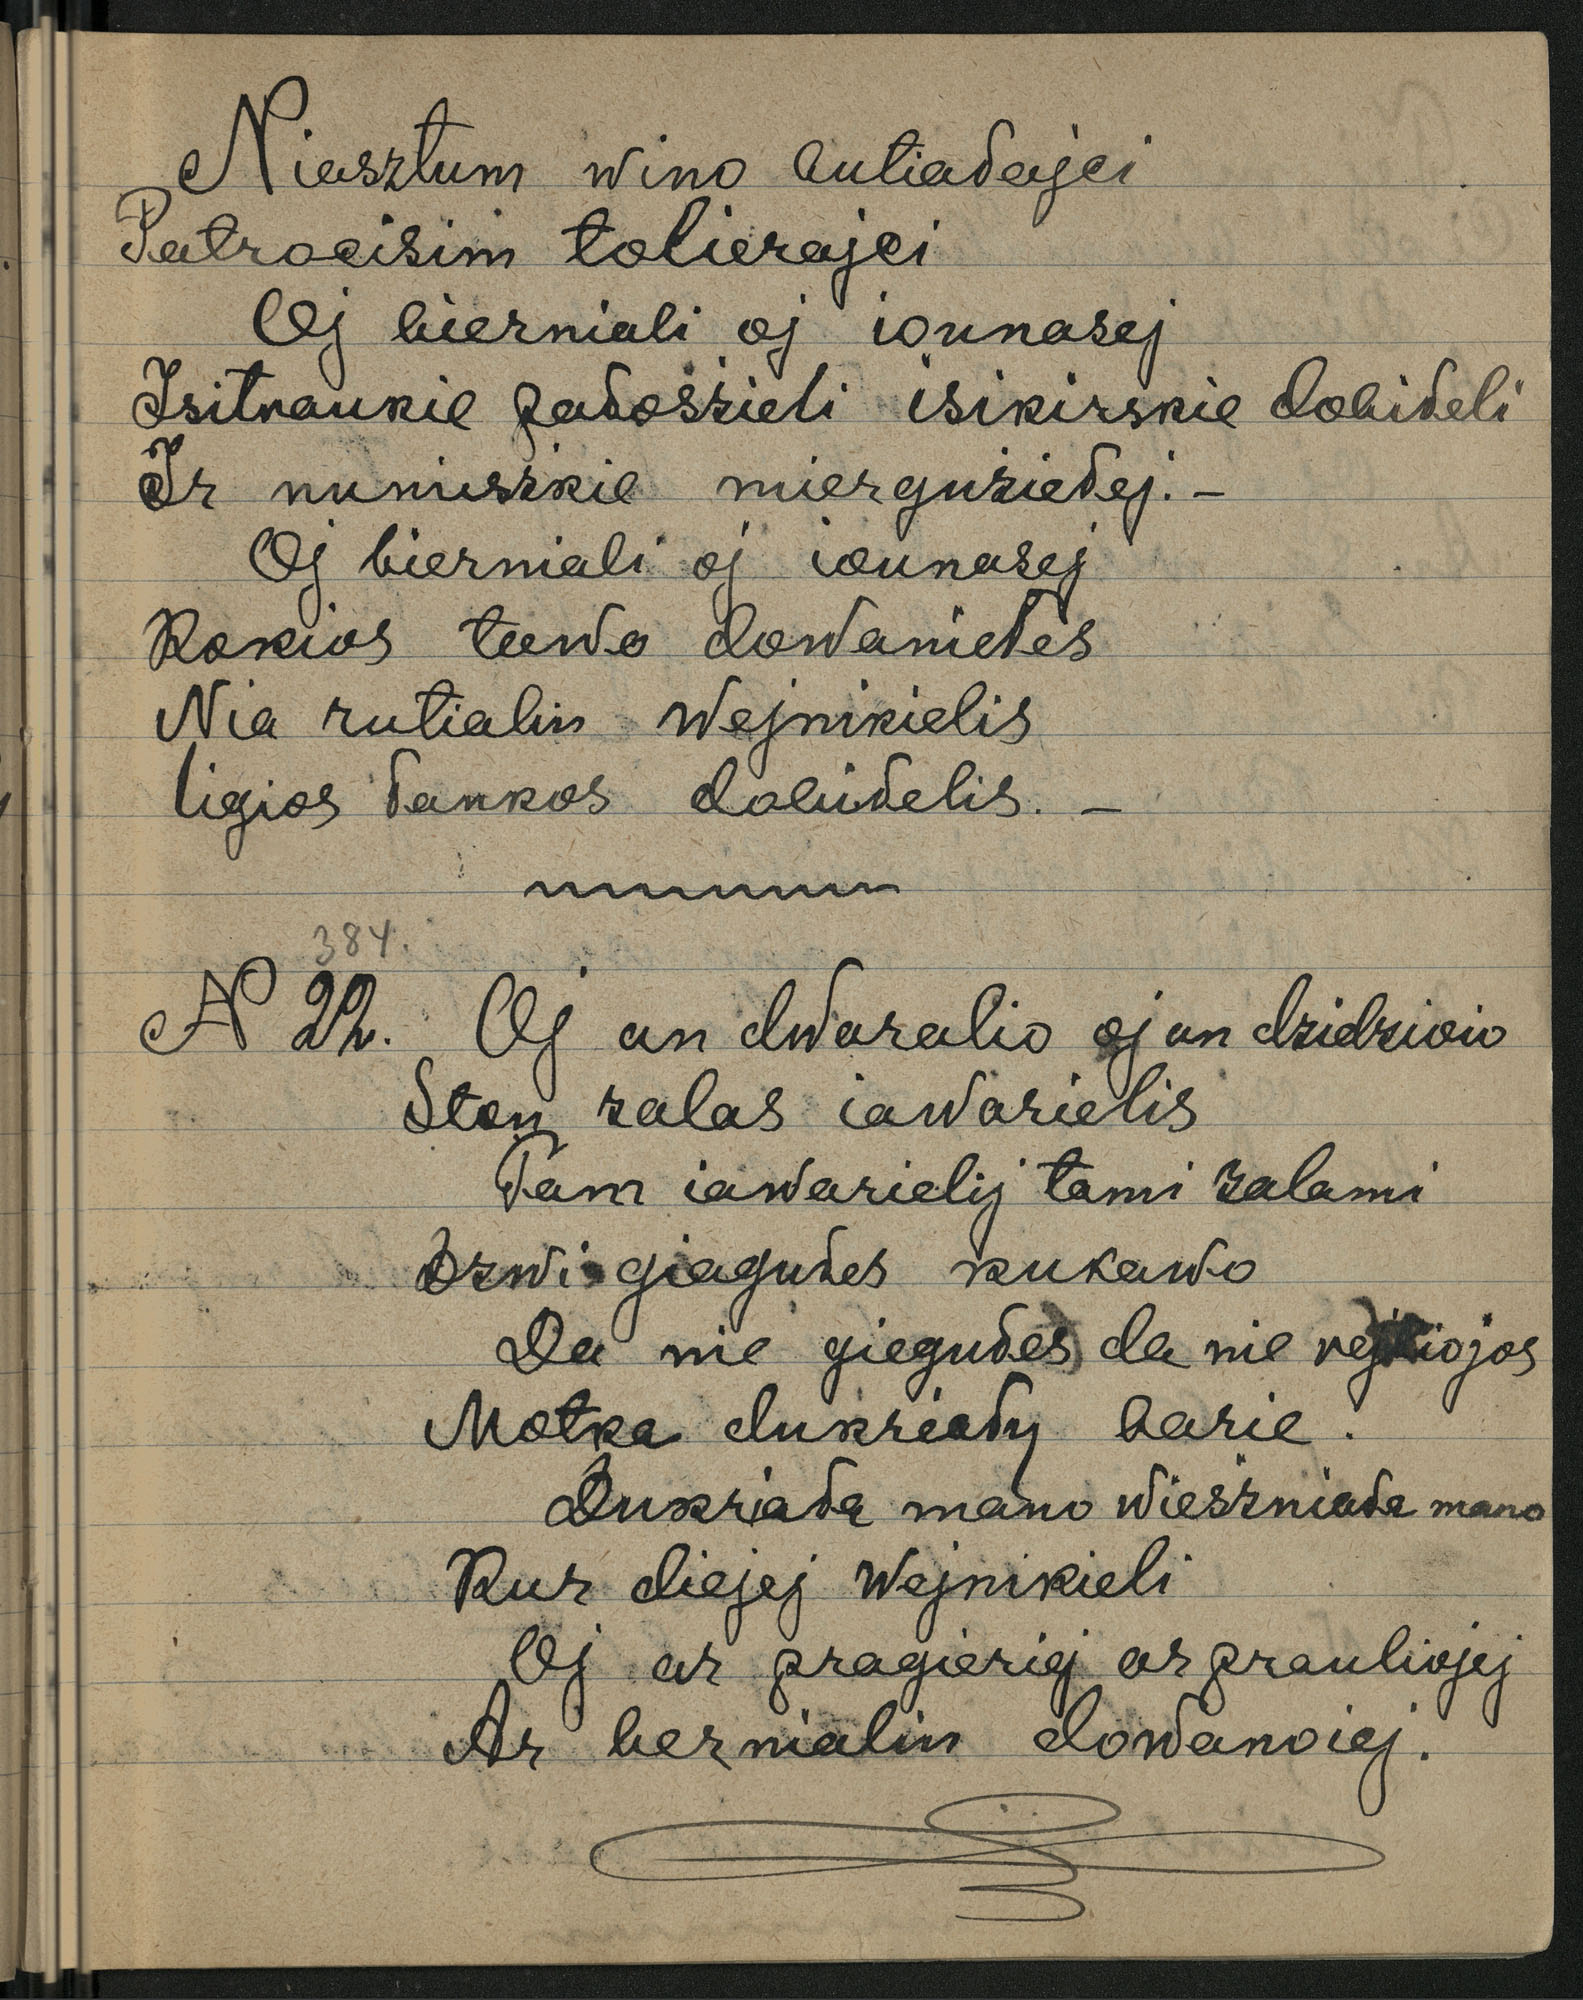 Niasztum wino butiadajci
Patrocisim tolierajci
Oj bierniali oj iounasej
Isitraukie padoszieli isikirskie dobideli
Ir numiszkie mierguziedej. –
Oj bierniali oj iounasej
Kokios tewo dowanietes
Nia rutialin wejnikielis
ligios dankos dobidelis. –
384.
N 22. Oj an dwaralio oj an dzidzioio
Ston zalas iawarielis
Tam iawarielij tami zalami
Dzwi giagudes kukawo
Da nie giegudes da nie
Motka dukriady barie.
Dukriada mano wieszniada mano
Kur diejej wejnikieli
Oj ar pragieriej ar prauliojej
Ar bernialin dowanoiej.